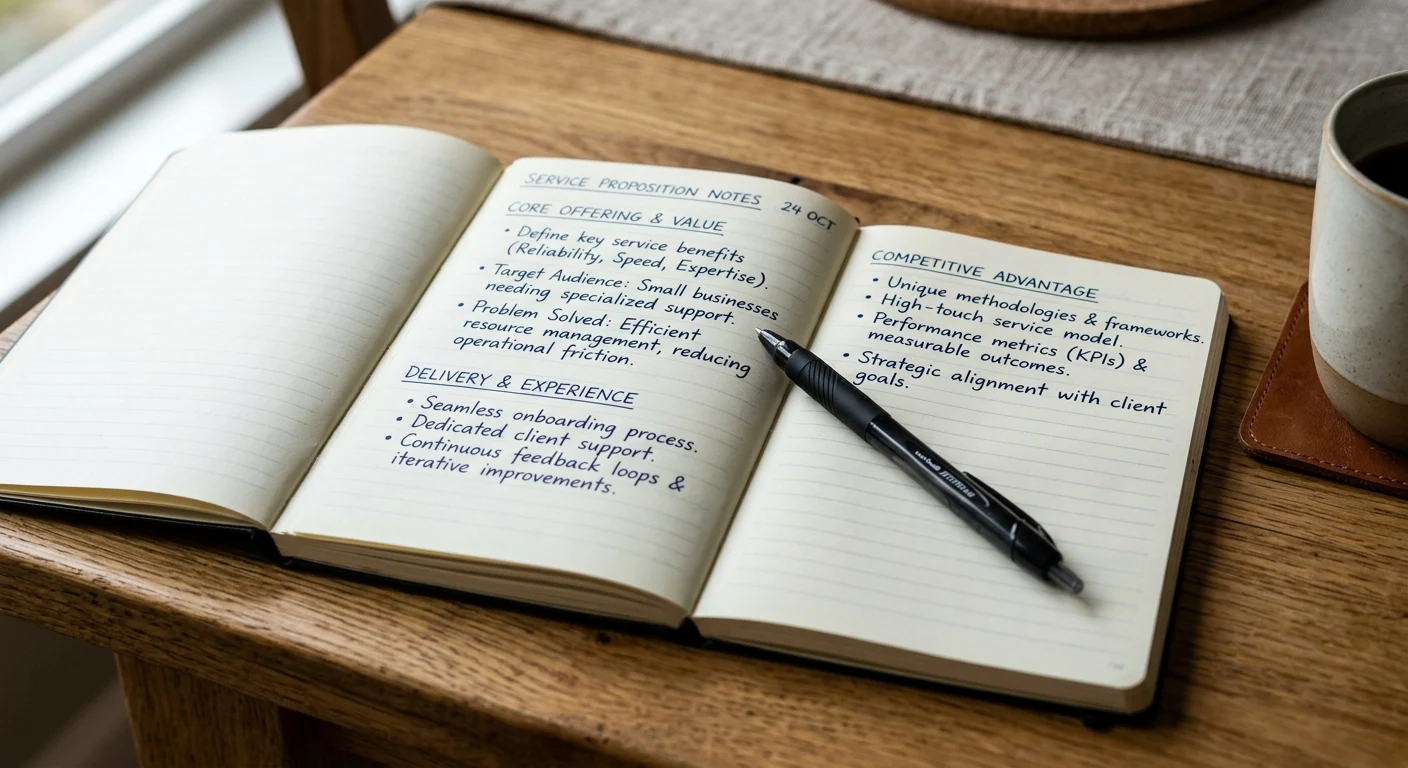 SERVICE PROPOSITION NOTES 24 OCT
CORE OFFERING & VALUE
• Define key service benefits
(Reliability, Speed, Expertise).
• Target Audience: Small businesses
needing specialized support.
• Problem Solved: Efficient
resource management, reducing
operational friction.
DELIVERY & EXPERIENCE
• Seamless onboarding process.
• Dedicated client support.
• Continuous feedback loops &
iterative improvements.
COMPETITIVE ADVANTAGE
• Unique methodologies & frameworks.
• High-touch service model.
• Performance metrics (KPIs) &
measurable outcomes.
• Strategic alignment with client
goals.